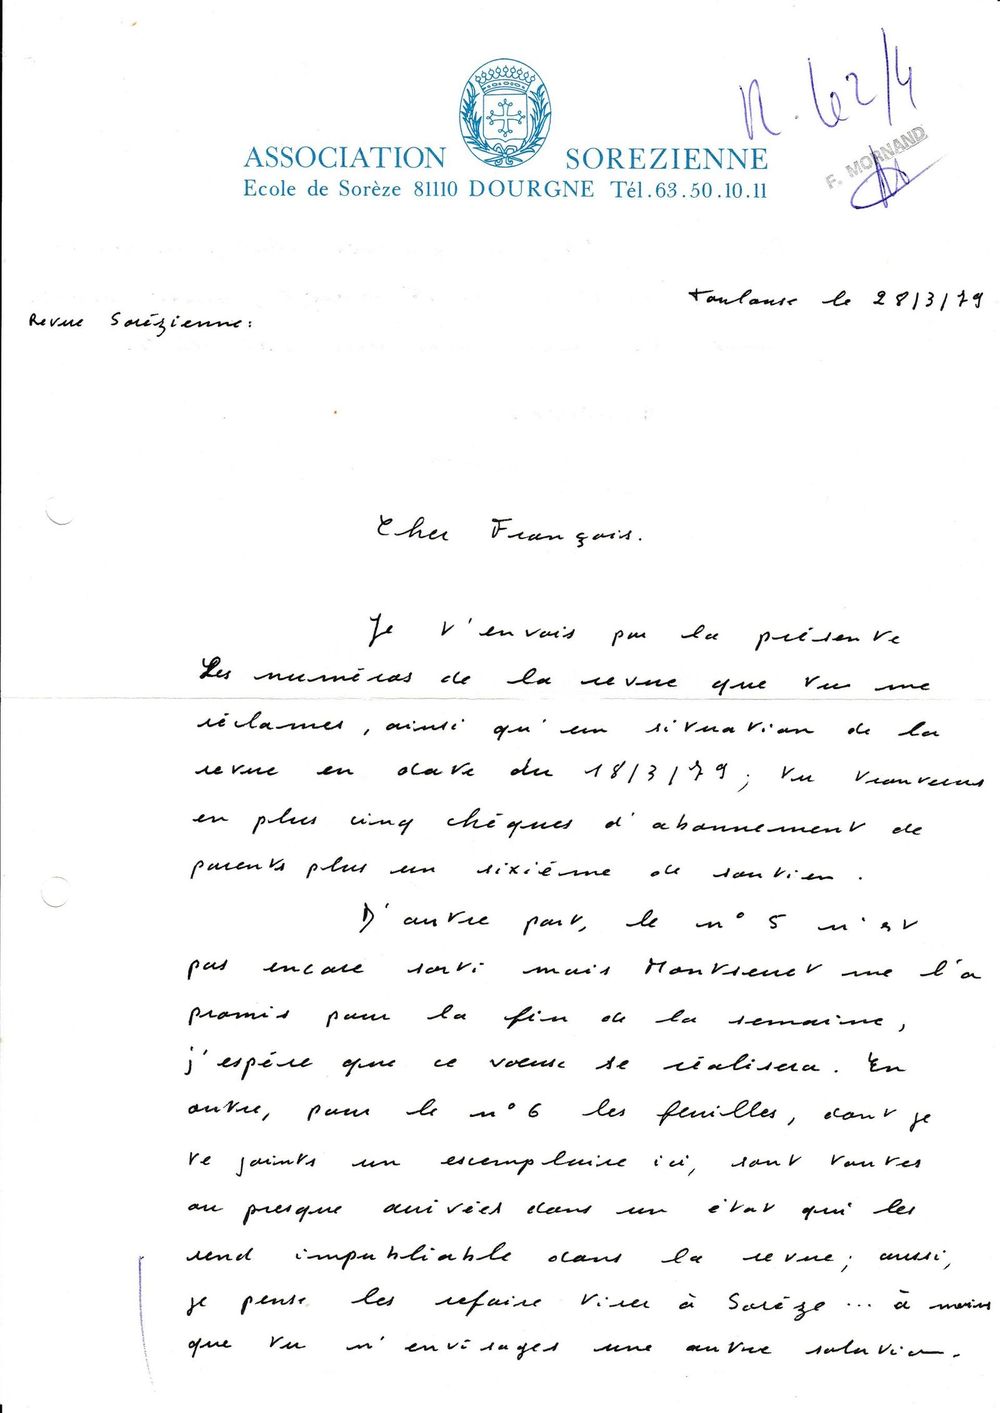 R. 62/4
F. MORNAND
ASSOCIATION SOREZIENNE
Ecole de Sorèze 81110 DOURGNE Tél.63.50.10.11
Toulouse le 28/3/79
Revue Sorézienne:
Cher François.
Je t'envois par la présente
Les numéros de la revue que tu me
réclames, ainsi qu'un situation de la
revue en date du 18/3/79; tu trouveras
en plus cinq chèques d'abonnement de
parents plus un sixième de soutien.
D'autre part, le n° 5 n'est
pas encore sorti mais Montserret me l'a
promis pour la fin de la semaine,
j'espère que ce voeux se réalisera. En
outre, pour le n° 6 les feuilles, dont je
te joints un escemplaire ici, sont toutes
ou presque arrivées dans un état qui les
rend impubliable dans la revue; aussi,
je pense les refaire tirer à Sorèze... à moins
que tu n'envisages une autre solution.